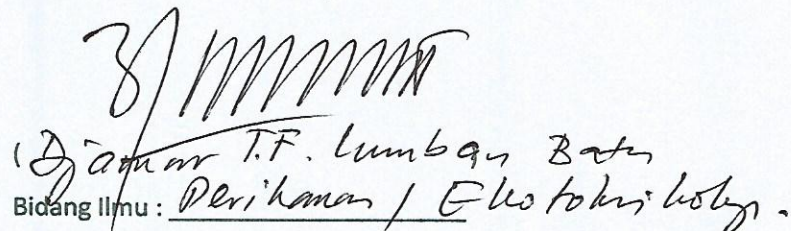 (Djamar T.F. Lumban Batu
Bidang Ilmu : Perikanan / Ekotoksikologi.